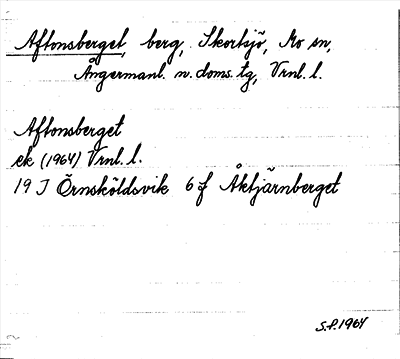 Aftonsberget, berg, Skortsjö, Mo sn,
Ångermanl. n. doms. tg, Vrnl. l.
Aftonsberget
ek (1964) Vrnl. l.
19 J Örnsköldsvik 6 f Åktjärnberget
S.P. 1964